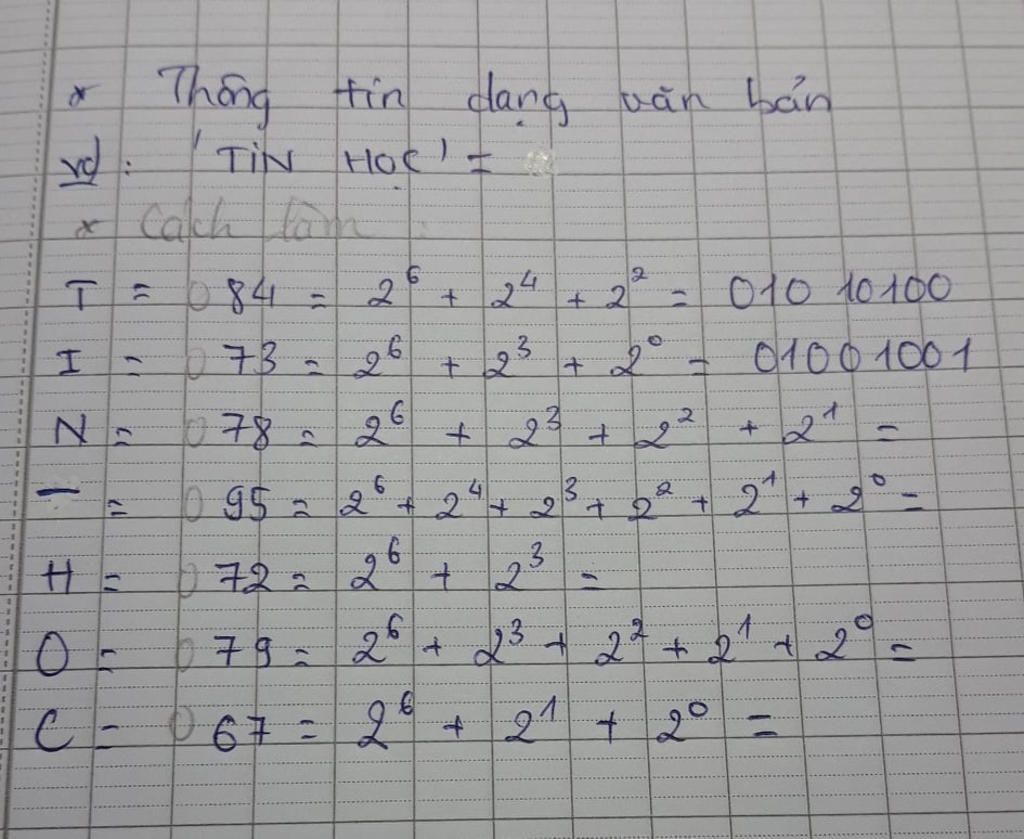 * Thông tin dạng văn bản
vd: 'TIN HỌC' =
* Cách làm:
T = 0 84 = 2⁶ + 2⁴ + 2² = 010 10100
I = 0 73 = 2⁶ + 2³ + 2⁰ = 01001001
N = 0 78 = 2⁶ + 2³ + 2² + 2¹ =
_ = 0 95 = 2⁶ + 2⁴ + 2³ + 2² + 2¹ + 2⁰ =
H = 0 72 = 2⁶ + 2³ =
O = 0 79 = 2⁶ + 2³ + 2² + 2¹ + 2⁰ =
C = 0 67 = 2⁶ + 2¹ + 2⁰ =